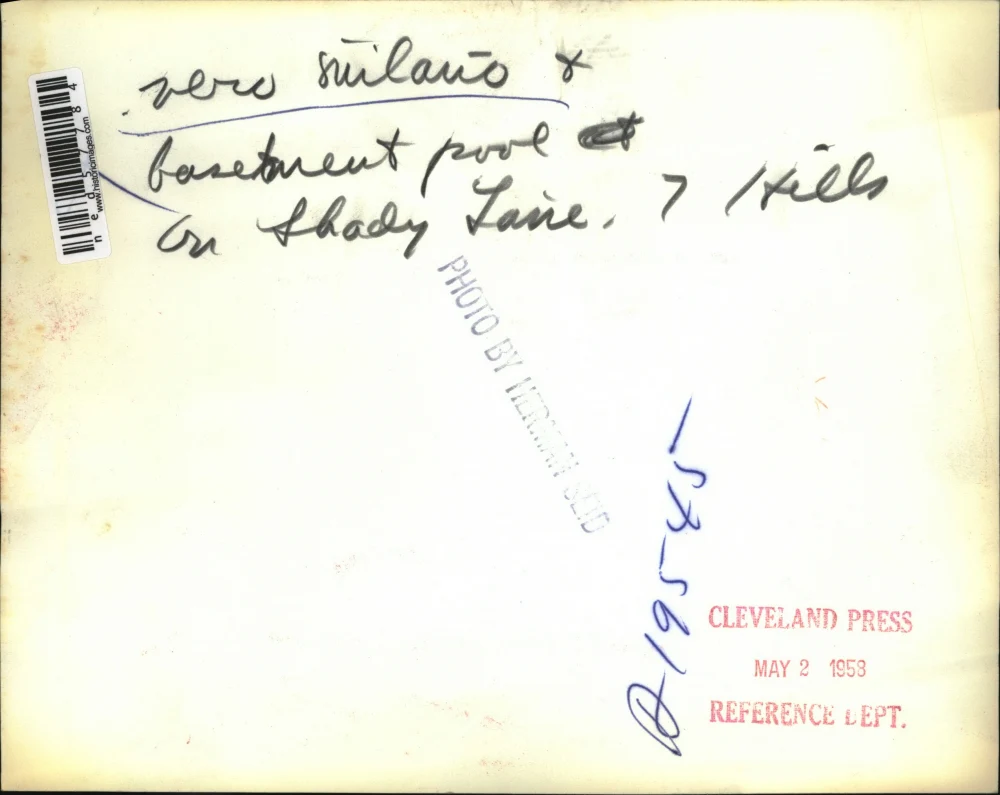 vero Milano &
basetment pool at
on Shady Lane, 7 Hills
PHOTO BY HERMAN SEID
A-19545
CLEVELAND PRESS
MAY 2 1958
REFERENCE DEPT.
www.historicimages.com
ned57784